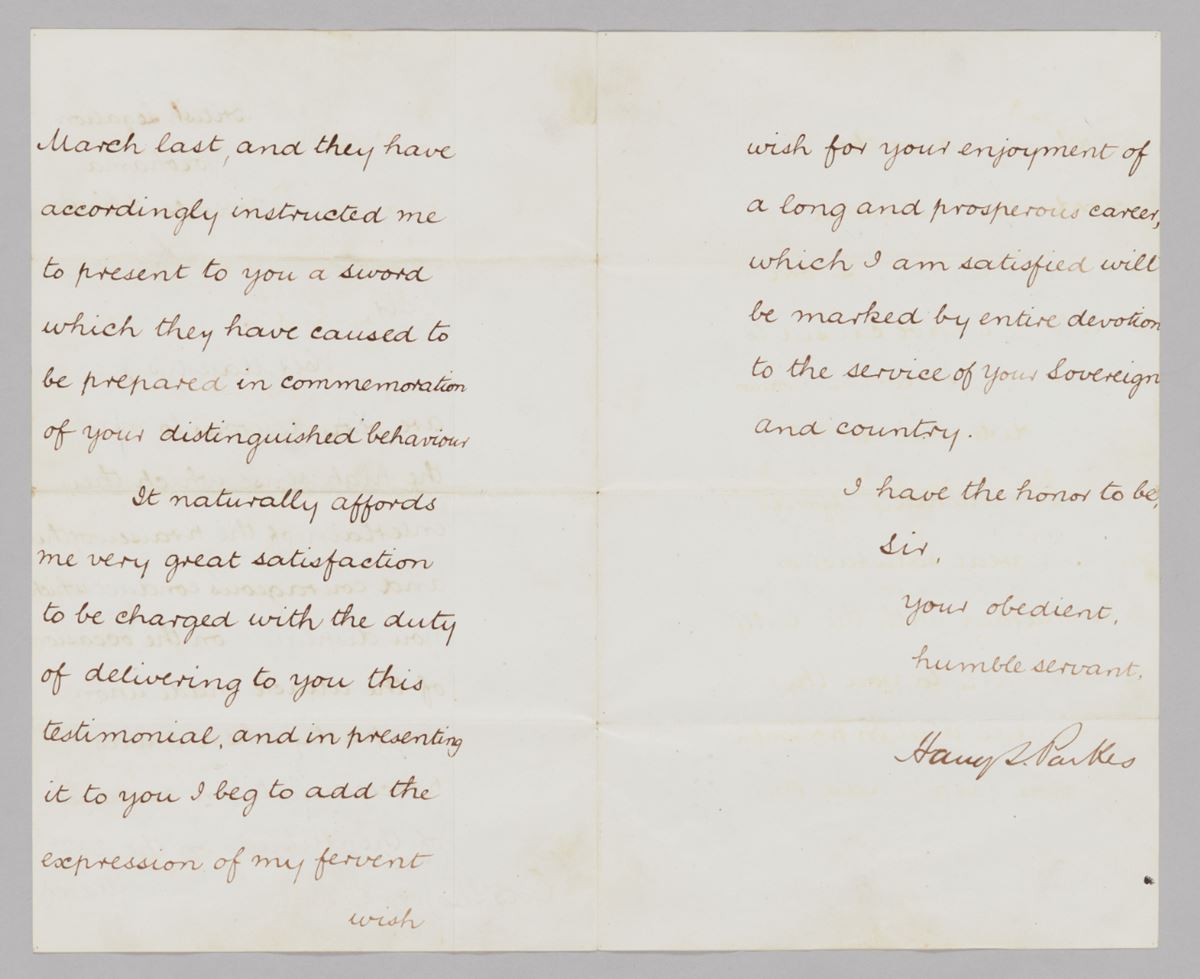 March last, and they have
accordingly instructed me
to present to you a sword
which they have caused to
be prepared in commemoration
of your distinguished behaviour
It naturally affords
me very great satisfaction
to be charged with the duty
of delivering to you this
testimonial, and in presenting
it to you I beg to add the
expression of my fervent
wish
wish for your enjoyment of
a long and prosperous career,
which I am satisfied will
be marked by entire devotion
to the service of your Sovereign
and country.
I have the honor to be,
Sir,
your obedient,
humble servant,
Harry S. Parkes